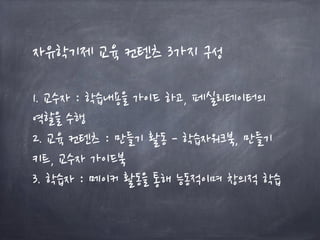 자유학기제 교육 컨텐츠 3가지 구성
1. 교수자 : 학습내용을 가이드 하고, 퍼실리테이터의
역할을 수행
2. 교육 컨텐츠 : 만들기 활동 - 학습자워크북, 만들기
키트, 교수자 가이드북
3. 학습자 : 메이커 활동을 통해 능동적이며 창의적 학습